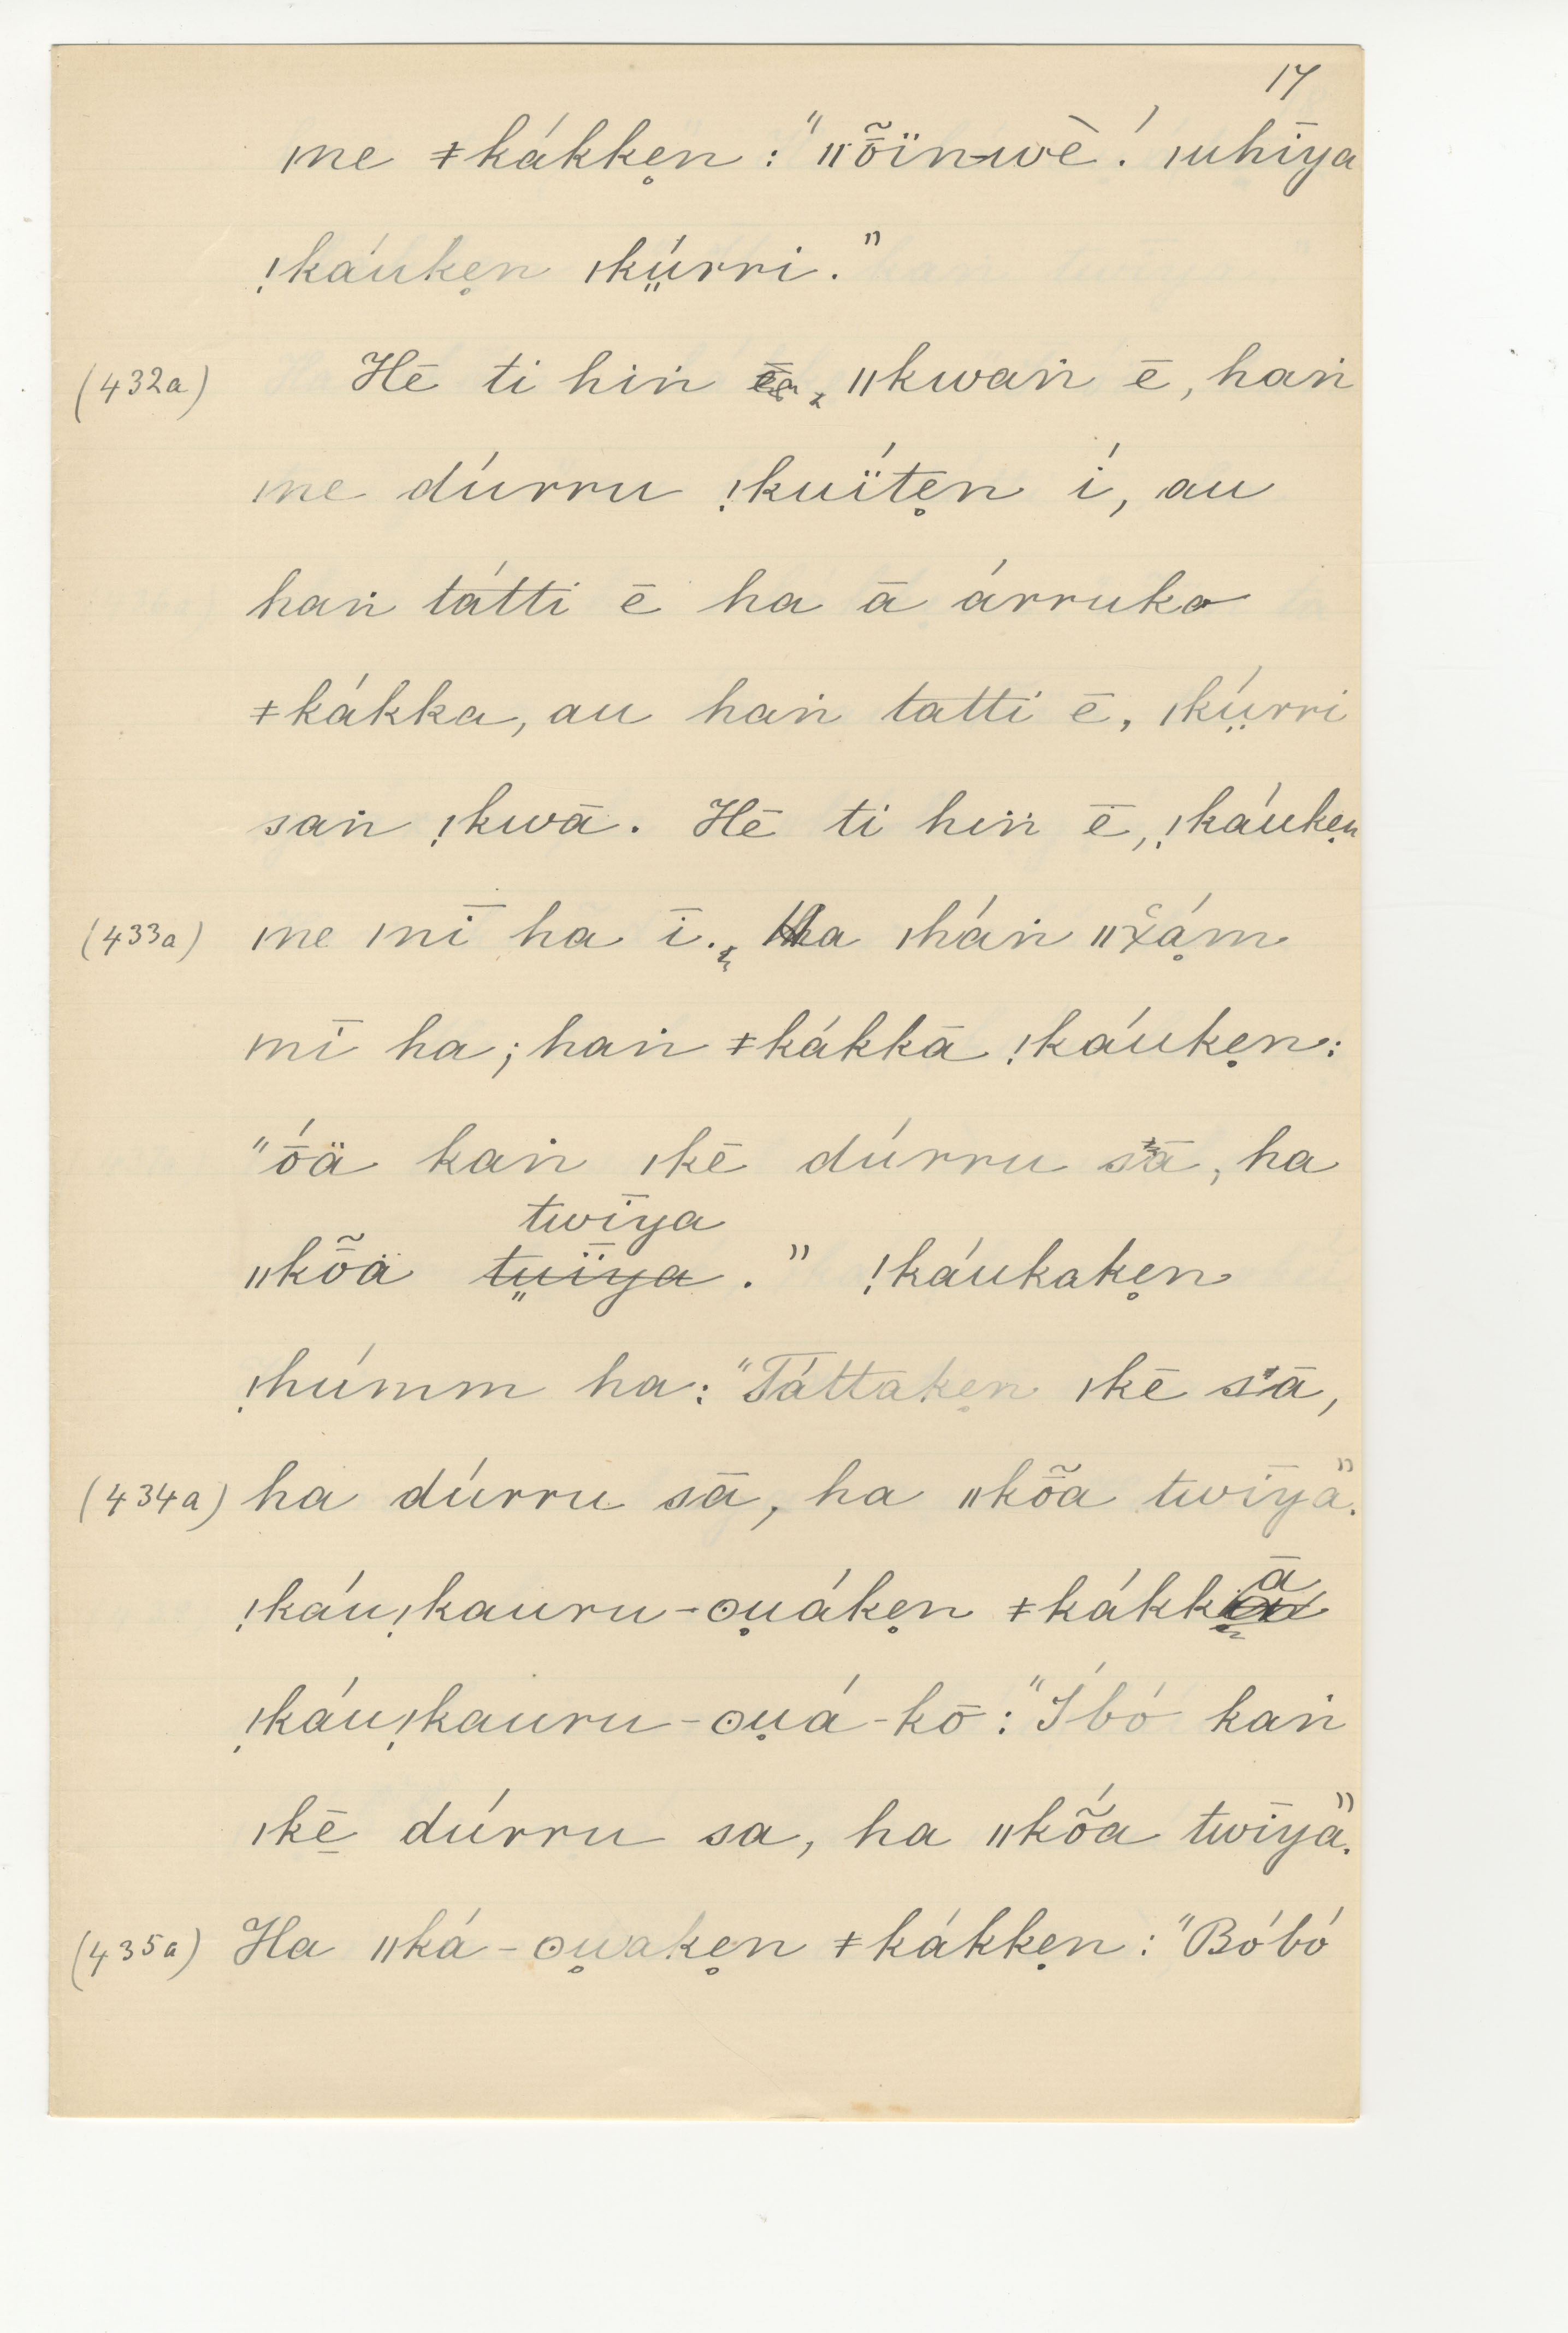 17
ıne ǂkákkẹn : "ǁȭïn-wè! ǀuhīya
ǃkáukẹn ǀkṳ́rri."
(432a) Hē ti hiṅ ē, ǁkwaṅ ē, haṅ
ıne dúrru ǃkuïtẹn í, au
haṅ tátti ē ha ā árruko
ǂkákka, au haṅ tatti ē, ǀkṳ́rri
saṅ ǃkwā. Hē ti hiṅ ē, ǃkáukẹn
(433a) ıne ınī ha ī. Ha ǀháṅ ǁx̆ạ́m
ınī ha; haṅ ǂkákkā ǃkáukẹn:
"ṓä kaṅ ǀkē dúrru sā, ha
twīya
ǁkȭä tṳïya." ǃkáukakẹn
ǃhúmm ha: "Táttakẹn ǀkē sā,
(434a) ha dúrru sā, ha ǁkȭa twīya".
ǃkáuǃkauru-ʘụákẹn ǂkákkā
ǃkáuǃkauru-ʘụá-kō: "Íbó kaṅ
ǀkē̱ dúrru sa, ha ǁkṍa twīya".
(435a) Ha ǁká-ʘụakẹn ǂkákkẹn: "Bóbó